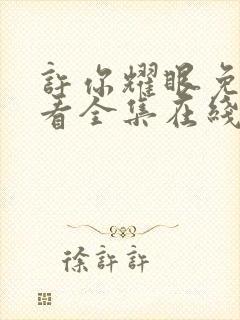 許你耀眼免
看全集在綫
徐許許